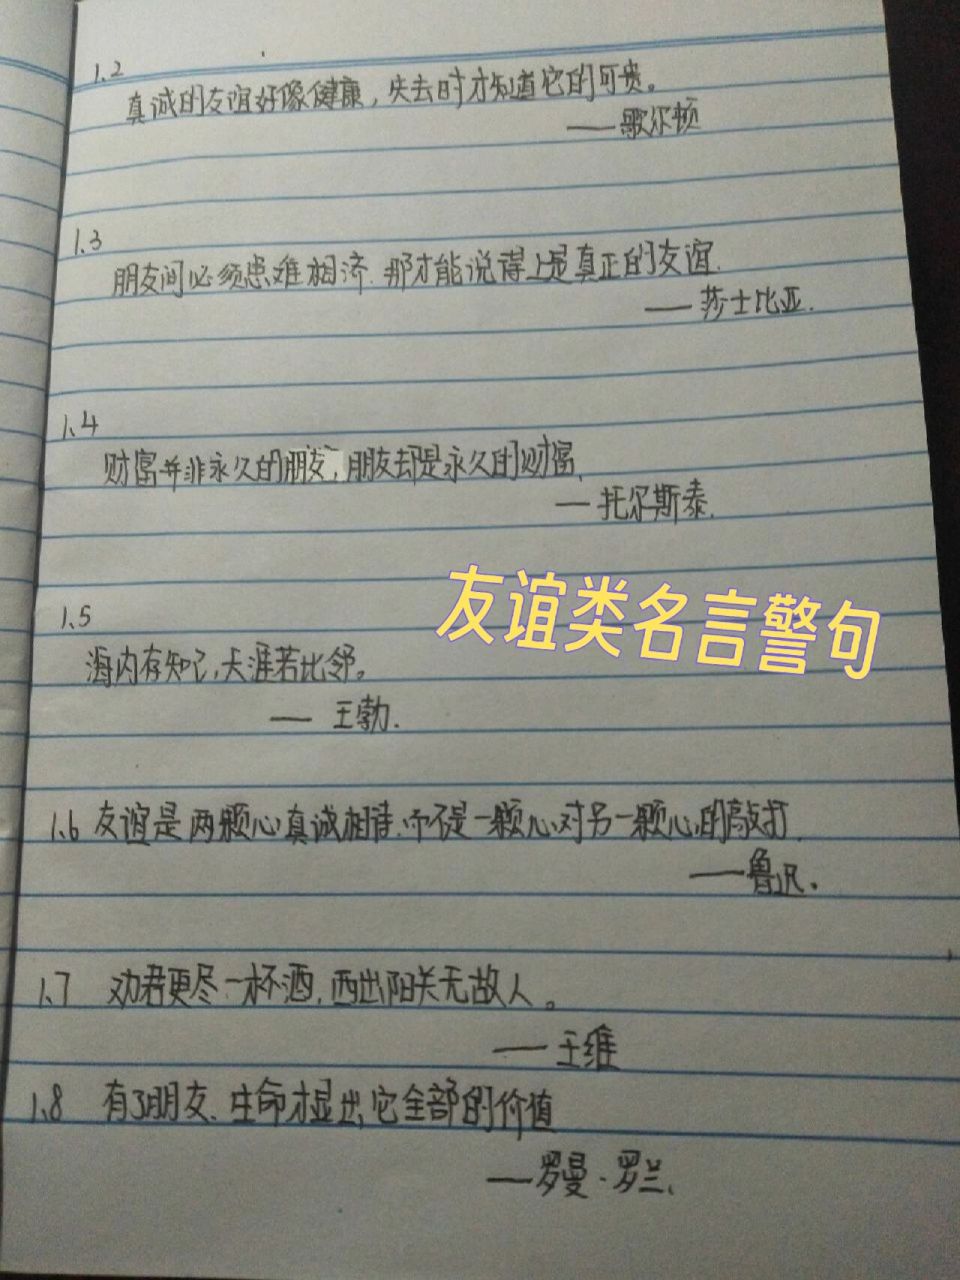 1.2
真诚的友谊好像健康，失去时才知道它的可贵。
——歌尔顿
1.3
朋友间必须患难相济.那才能说得上是真正的友谊.
——莎士比亚.
1.4
财富并非永久的朋友，朋友却是永久的财富.
—托尔斯泰.
友谊类名言警句
1.5
海内存知己,天涯若比邻。
—— 王勃.
1.6 友谊是两颗心真诚相待.而不是一颗心对另一颗心的敲打.
——鲁迅.
1.7 劝君更尽一杯酒,西出阳关无故人。
——王维
1.8 有了朋友、生命才显出它全部的价值
——罗曼·罗兰、